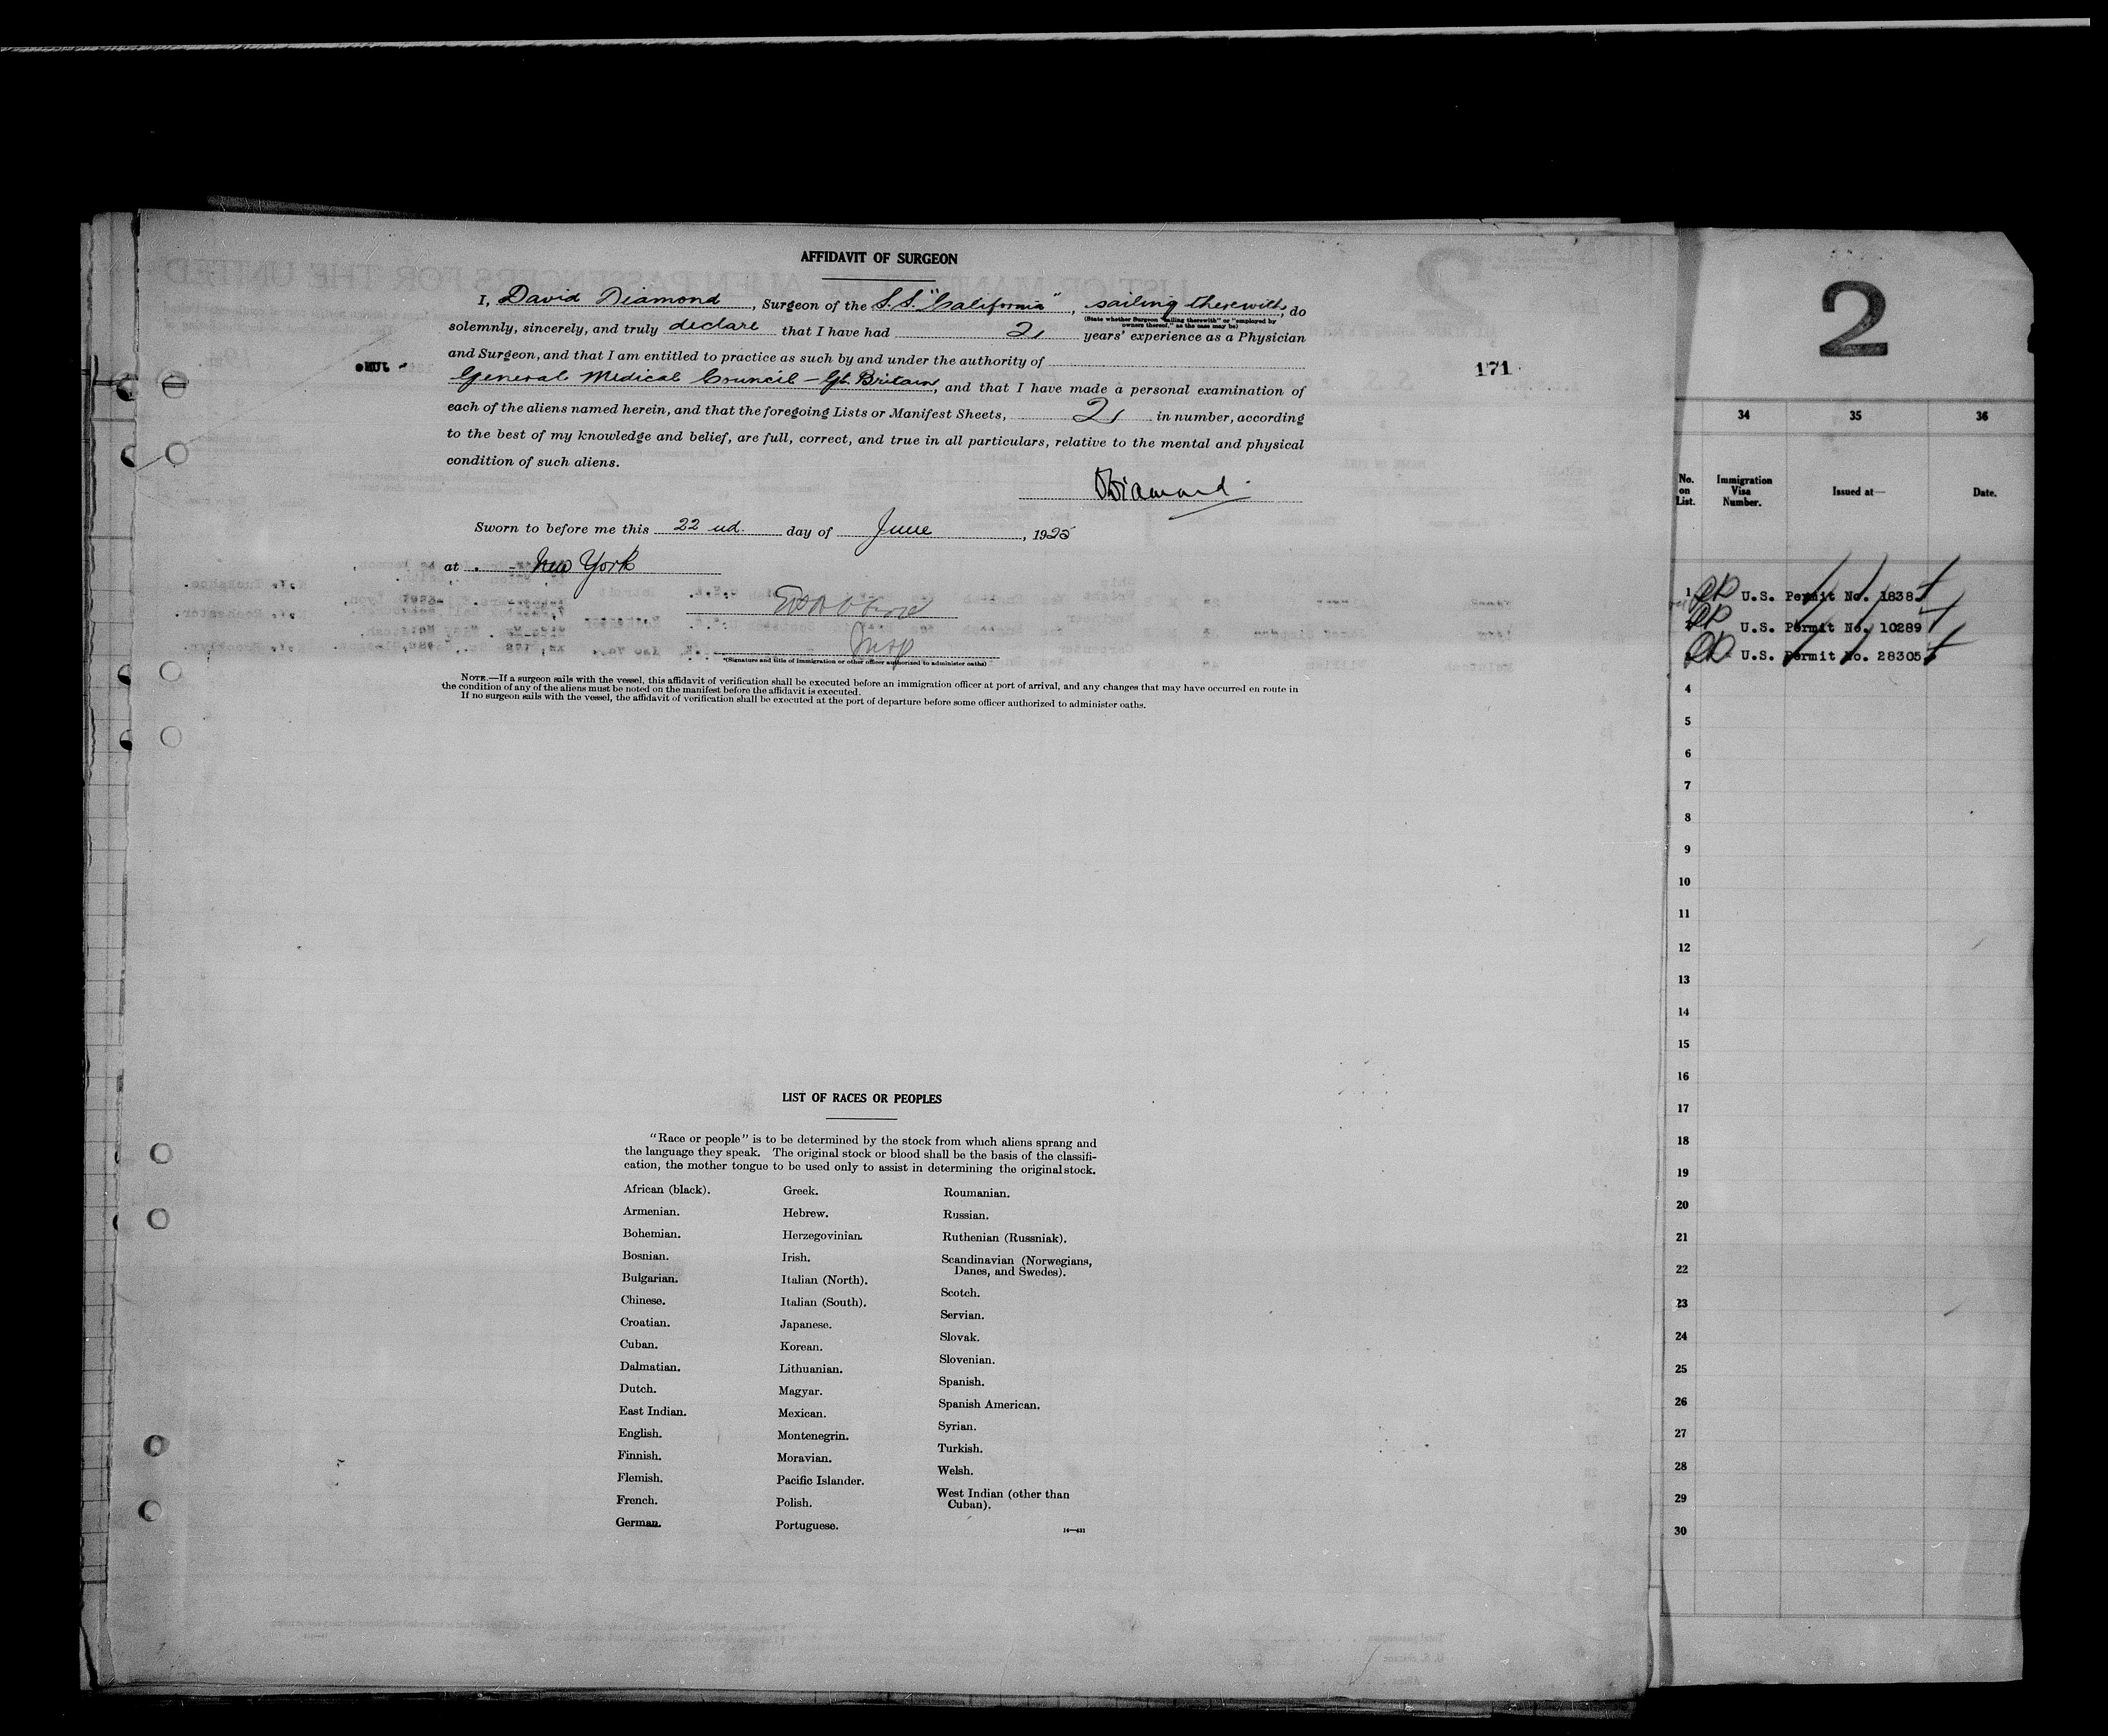 AFFIDAVIT OF SURGEON
I, David Diamond, Surgeon of the S.S. "California", sailing therewith, do
(State whether Surgeon "sailing therewith" or "employed by
owners thereof," as the case may be)
solemnly, sincerely, and truly declare that I have had 2 years' experience as a Physician
and Surgeon, and that I am entitled to practice as such by and under the authority of
General Medical Council - Gt. Britain, and that I have made a personal examination of
each of the aliens named herein, and that the foregoing Lists or Manifest Sheets, 2 in number, according
to the best of my knowledge and belief, are full, correct, and true in all particulars, relative to the mental and physical
condition of such aliens.
DDiamond
Sworn to before me this 22 nd. day of June, 1925
at New York
Insp
*(Signature and title of immigration or other officer authorized to administer oaths)
NOTE.—If a surgeon sails with the vessel, this affidavit of verification shall be executed before an immigration officer at port of arrival, and any changes that may have occurred en route in
the condition of any of the aliens must be noted on the manifest before the affidavit is executed.
If no surgeon sails with the vessel, the affidavit of verification shall be executed at the port of departure before some officer authorized to administer oaths.
171
LIST OF RACES OR PEOPLES
"Race or people" is to be determined by the stock from which aliens sprang and
the language they speak. The original stock or blood shall be the basis of the classifi-
cation, the mother tongue to be used only to assist in determining the original stock.
African (black).
Armenian.
Bohemian.
Bosnian.
Bulgarian.
Chinese.
Croatian.
Cuban.
Dalmatian.
Dutch.
East Indian.
English.
Finnish.
Flemish.
French.
German.
Greek.
Hebrew.
Herzegovinian.
Irish.
Italian (North).
Italian (South).
Japanese.
Korean.
Lithuanian.
Magyar.
Mexican.
Montenegrin.
Moravian.
Pacific Islander.
Polish.
Portuguese.
Roumanian.
Russian.
Ruthenian (Russniak).
Scandinavian (Norwegians,
Danes, and Swedes).
Scotch.
Servian.
Slovak.
Slovenian.
Spanish.
Spanish American.
Syrian.
Turkish.
Welsh.
West Indian (other than
Cuban).
14—431
2
34 35 36
No.
on
List.
Immigration
Visa
Number.
Issued at—
Date.
1 U.S. Permit No. 1838
U.S. Permit No. 10289
U.S. Permit No. 28305
4
5
6
7
8
9
10
11
12
13
14
15
16
17
18
19
20
21
22
23
24
25
26
27
28
29
30